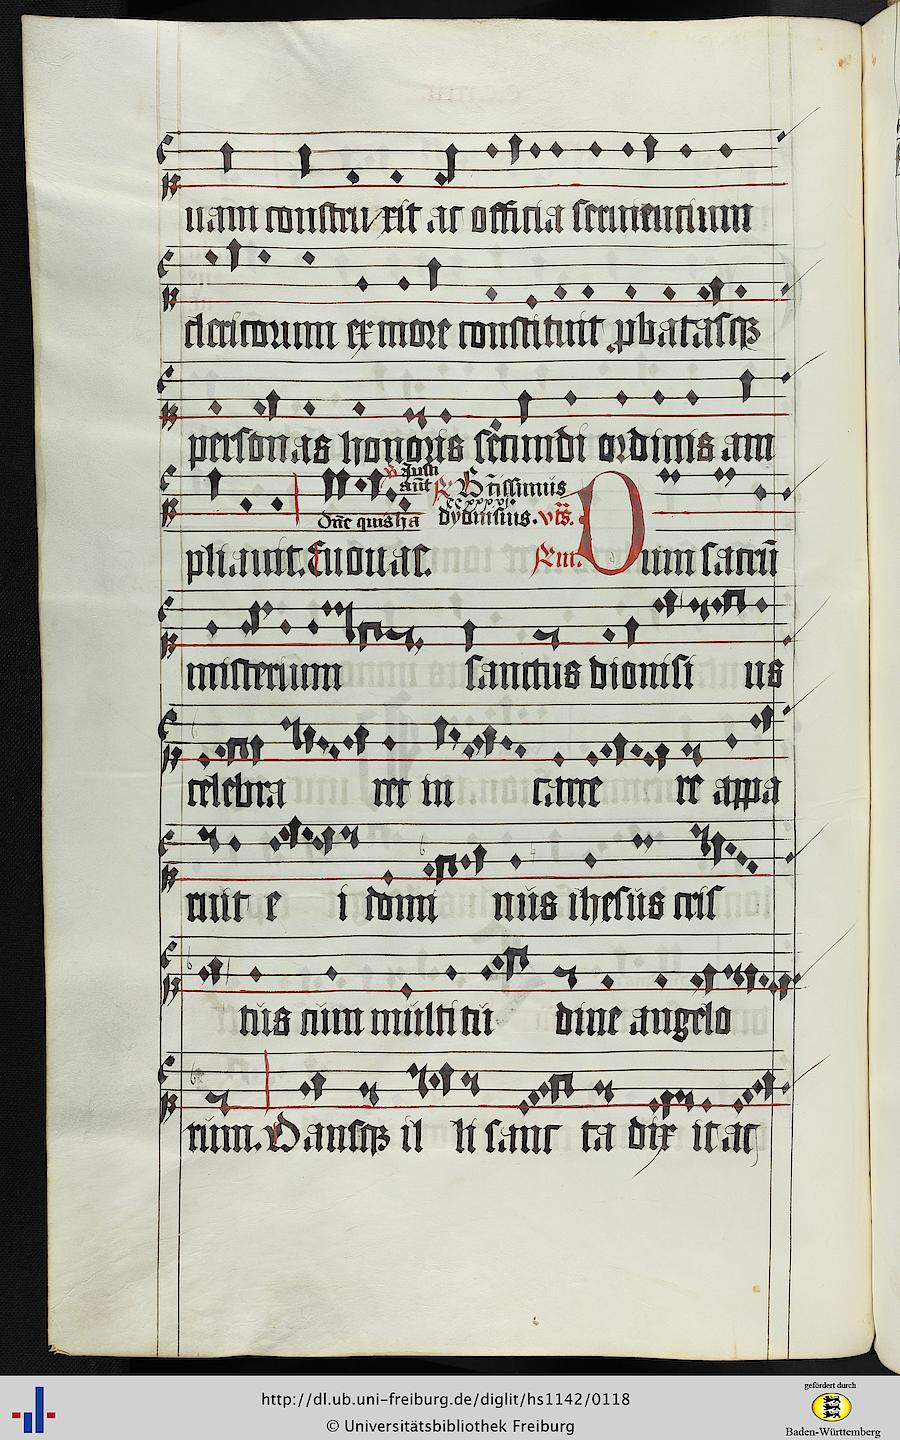 uam construxit ac officia seruientium
clericorum ex more constituit p̱batasq₃
personas honoris secundi ordinis am
pliauit. Euouae. Dñe quis ha aũt dyonisius. R. iii. Dum sacrũ
misterium sanctus dionisi us
celebra ret in carce re appa
ruit e i domi nus ihesus cris
tus cum multitu dine angelo
rum. Dansq₃ il li sanc ta dix it ac
http://dl.ub.uni-freiburg.de/diglit/hs1142/0118
© Universitätsbibliothek Freiburg
gefördert durch
Baden-Württemberg